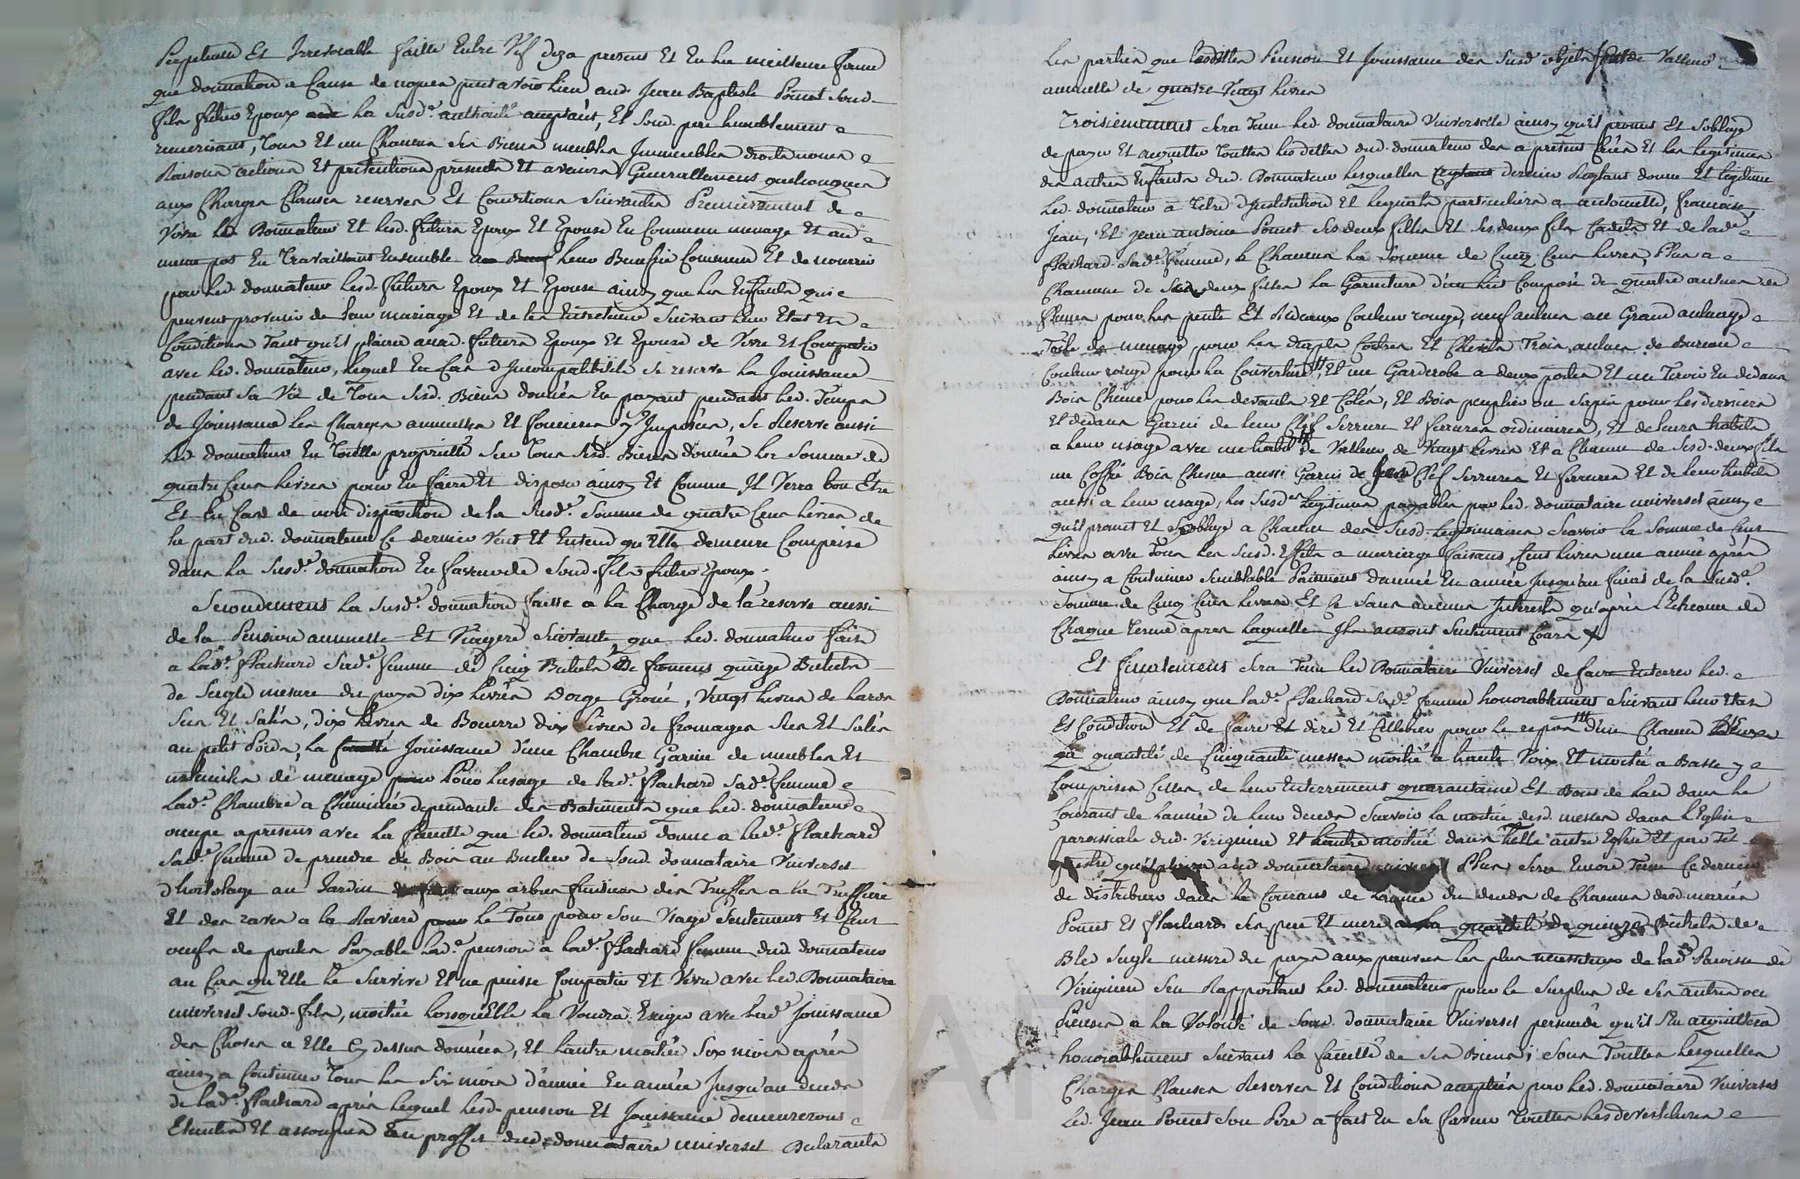 Perpetuelle Et Irrevocable faitte Entre Vif deja present Et En la meilleure forme
que donnation a Cause de nopces peut avoir lieu aud. Jean Baptiste Ponet Soud.
fils futur Epoux de la Susd.e authorité acceptant, Et Soud. pere humblement
remerciant, Tous Et un Chacun Ses Biens meubles Immeubles droits noms
Raisons actions Et prétentions presents Et avenirs Generallement quelconques
aux Charges Clauses reserves Et Conditions Suivantes Premierement de
Vivre led. Donnateur Et lesd. futurs Epoux Et Epouse En Commun menage Et au
meme pot En Travaillant Ensemble a leur Benefice Commun Et de nourrir
par led. donnateur lesd. futurs Epoux Et Epouse ainsy que les Enfants qui
peuvent provenir de leur mariage Et de les Entretenir Suivant leur Etat Et
Condition Tant qu'il plaira auxd. futurs Epoux Et Epouse de Vivre Et Compatir
avec led. donnateur, lequel En Cas d'Incompatibilité Se reserve la Jouissance
pendant Sa Vie de Tous Sesd. Biens donnés En payant pendant led. Temps
de Jouissance les Charges annuelles Et foncieres y Imposées, Se Reserve aussi
led. donnateur En Toutte proprietté Sur Tous Sesd. Biens donnés la Somme de
quatre Cens livres pour En faire Et disposer ainsy Et Comme Il Verra bon Etre
Et En Cas de non disposition de la Susd.e Somme de quatre Cens livres de
la part dud. donnateur Ce dernier Veut Et Entend qu'Elle demeure Comprise
dans la Susd.e donnation En faveur de Soud. fils futur Epoux.
Secondement la Susd.e donnation faitte a la Charge de la reserve aussi
de la Pension annuelle Et Viagere Suivante que led. donnateur fait
a lad.e Flachard Sad.e femme de Cinq Bichets de froment quinze Bichets
de Seigle mesure du pays dix livres D'orge Groué, Vingt livres de lard
Sec Et Salés, dix livres de Beurre dix livres de fromages Secs Et Salés
au petit Poids, la Jouissance d'une Chambre Garnie de meubles Et
ustensiles de menage Pour lusage de lad.e Flachard Sad.e femme
lad.e Chambre a Cheminée dependante des Batiments que led. donnateur
occupe apresent avec la faculté que led. donnateur donne a lad.e Flachard
Sad.e femme de prendre de Bois au Bucher de Soud. donnataire Universel
d'hortolage au Jardin aux arbres fruitiers des Truffes a la Truffiere
Et des raves a la Raviere le Tous pour Son Usage Seulement Et Cent
oeufs de poules Payable lad.e pension a lad.e Flachard femme dud. donnateur
au Cas qu'Elle le Survive Et ne puisse Compatir Et Vivre avec led. Donnataire
universel Soud. fils, moitié lorsqu'Elle la Voudra Exiger avec lad.e Jouissance
des Choses a Elle Cy dessus données, Et l'autre moitié Six mois après
ainsy a Continuer Tous les Six mois d'année En année Jusqu'au decès
de lad.e Flachard après lequel lesd. pension Et Jouissance demeureront
Eteintes Et assoupies au proffit dud. donnataire universel Declarants
les parties que lesdittes Pension Et Jouissance des Susd. objets Sont de Valleur
annuelle de quatre Vingt livres
Troisiemement Sera Tenu led. donnataire Universelle ainsy qu'il promet Et S'oblige
de payer Et acquitter Touttes les dettes dud. donnateur des a present Créées Et les legitimes
des autres Enfants dud. Donnateur lesquelles dernier Reglant donne Et legitime
led. donnateur a Titre d'Institution Et leguats particuliers a antoinette, francoise,
Jean, Et Jean antoine Ponet Ses deux filles Et Ses deux fils Cadets Et de lad.e
Flachard Sad.e femme, a Chacun la Somme de Cinq Cens livres, Plus a
Chacune de Ses deux filles la Garniture d'un lict Composé de quatre aulnes de
pour les pents Et Rideaux Couleur rouge, neuf aulnes au Grand aulnage
Toile de menage pour les draps Et Chevets Trois aulnes de Bureau
Couleur rouge pour la Couverture, Et une Garderobe a deux portes Et un Tiroir En dedans
Bois Chene pour les devants Et Cotés, Et Bois peuplier ou Sapin pour les derriere
Et dedans Garni de leur Clef Serrure Et ferrures ordinaires, Et de leurs habits
a leur usage avec un habit de Valleur de Vingt livres Et a Chacun de Sesd. deux fils
un Coffre Bois Chesne aussi Garni de Clef Serrures Et ferrures Et de leurs habits
aussi a leur usage, les Susd.es legitimes payables par led. donnataire universel ainsy
qu'il promet Et S'oblige a Chacun des Susd. legitimaires Scavoir la Somme de Cent
livres avec Tous les Susd. Effets a mariage faisant, Cent livres une année après
ainsy a Continuer Semblable Paiement d'année En année Jusqu'au final de la Susd.e
Somme de Cinq Cens livres Et Ce Sans aucuns Interets qu'après l'Echeance de
Chaque Terme après laquelle Ils auront Seulement Cours
Et finalement Sera Tenu led. Donnataire Universel de faire Enterrer led.
Donnateur ainsy que lad.e Flachard Sad.e femme honorablement Suivant leur Etat
Et Condition Et de faire Et dire Et Celebrer pour le repos d'un Chacun
la quantité de Cinquante messes moitié a haute Voix Et moitié a Basse y
Comprises Celles de leur Enterrement quarantaine Et Bout de lan dans le
Courant de l'année de leur deces Scavoir la moitié desd. messes dans l'Eglise
paroissiale dud. Verigneux Et l'autre moitié dans Telle autre Eglise Et par Tel
aud. donnataire universel Plus Sera Encore Tenu Ce dernier
de distribuer dans le Courant de l'année du deces de Chacun desd. mariés
Ponet Et Flachard Ses pere Et mere la quantité de quinze Bichets de
Bled Seigle mesure du pays aux pauvres les plus necessiteux de lad.e Paroisse de
Verigneux Sen Rapportant led. donnateur pour le Surplus de Ses autres
a la Volonté de Soud. donnataire Universel persuadé qu'il S'En acquittera
honorablement Suivant la faculté de Ses Biens; Sous Touttes lesquelles
Charges Clauses Reserves Et Conditions acceptées par led. donnataire Universel
led. Jean Ponet Son Pere a fait En Sa faveur Touttes les devestitures